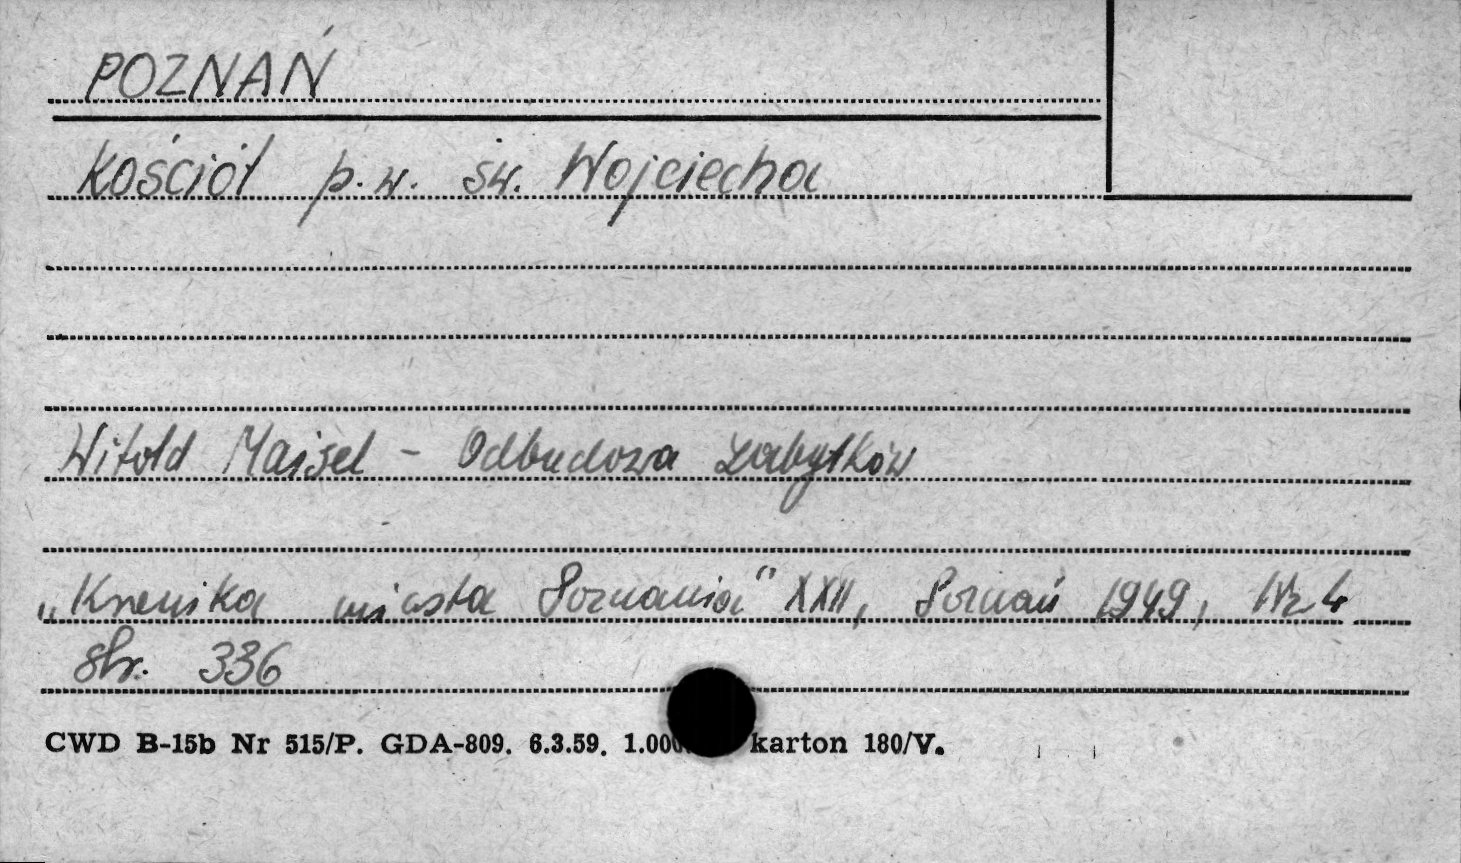 POZNAŃ
Kościół p.w. św. Wojciecha
Witold Maisel - Odbudowa zabytków
„Kronika miasta Poznania" XXII, Poznań 1949, Nr 4
str. 336
CWD B-15b Nr 515/P. GDA-809. 6.3.59. 1.000 karton 180/V.